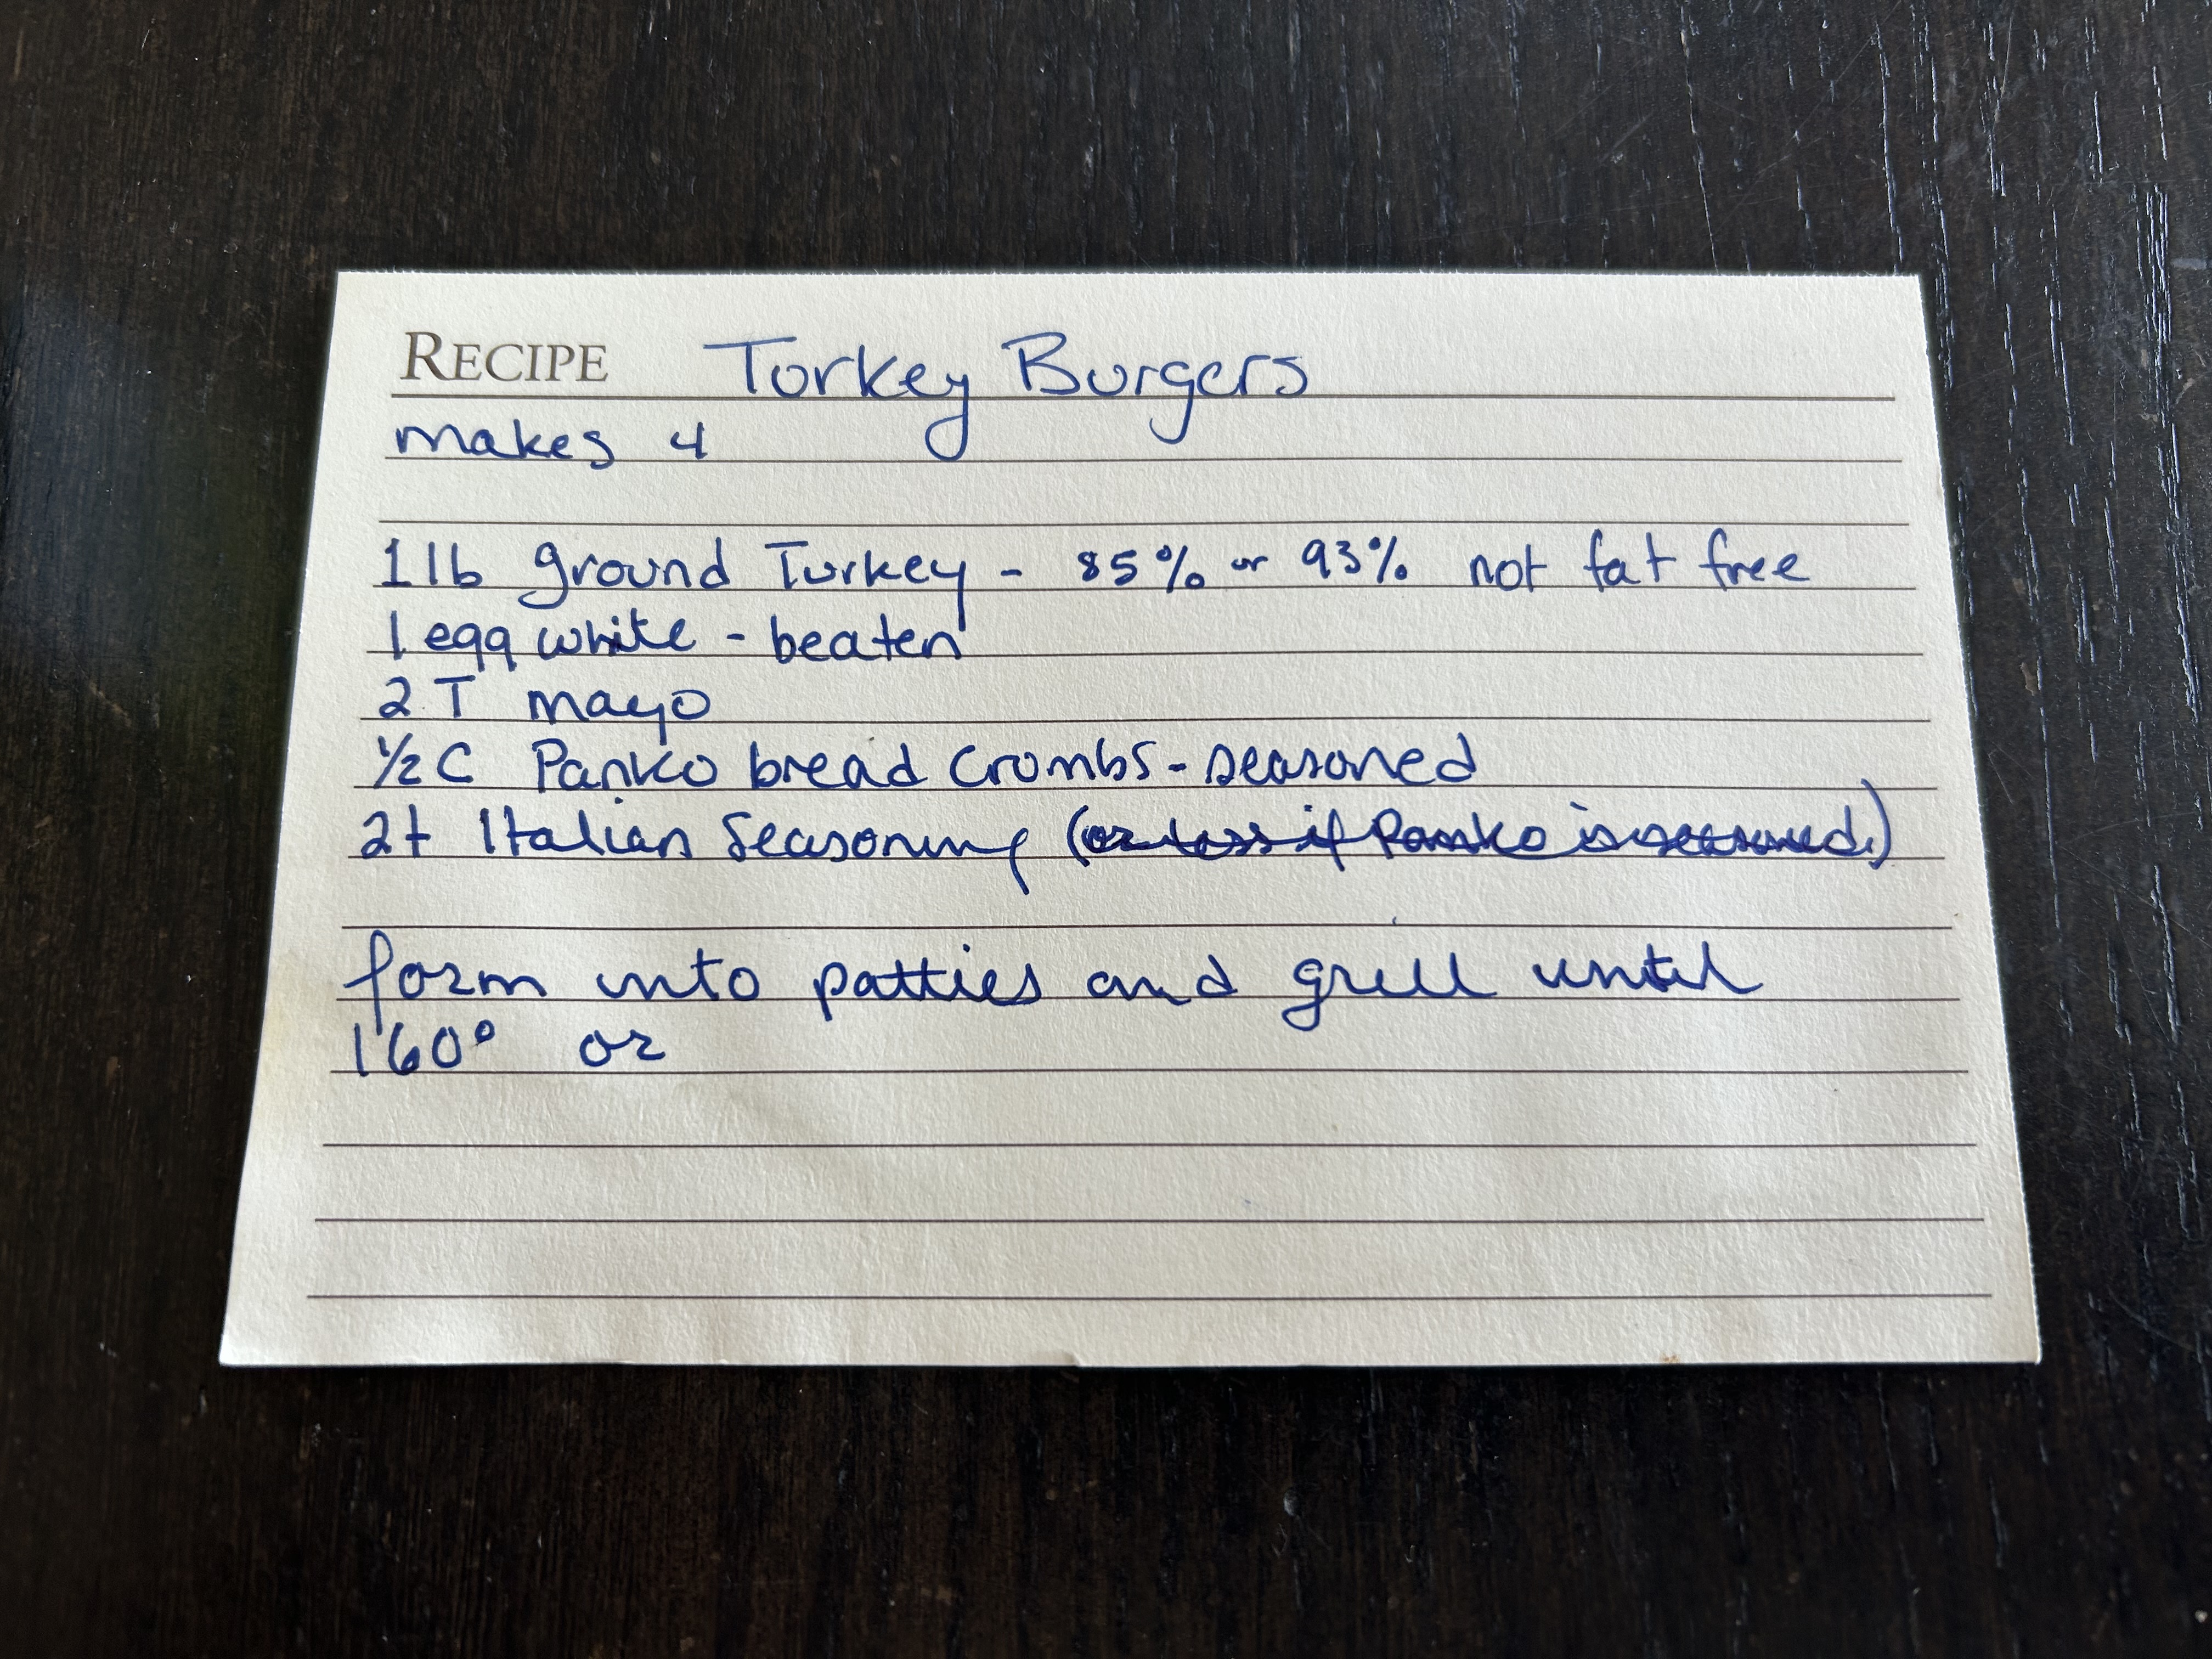 RECIPE Turkey Burgers
makes 4
1 lb ground Turkey - 85% or 93% not fat free
1 egg white - beaten
2 T mayo
1/2 C Panko bread crumbs - seasoned
2 t Italian Seasoning (or less if Panko is seasoned)
form into patties and grill until
160° or